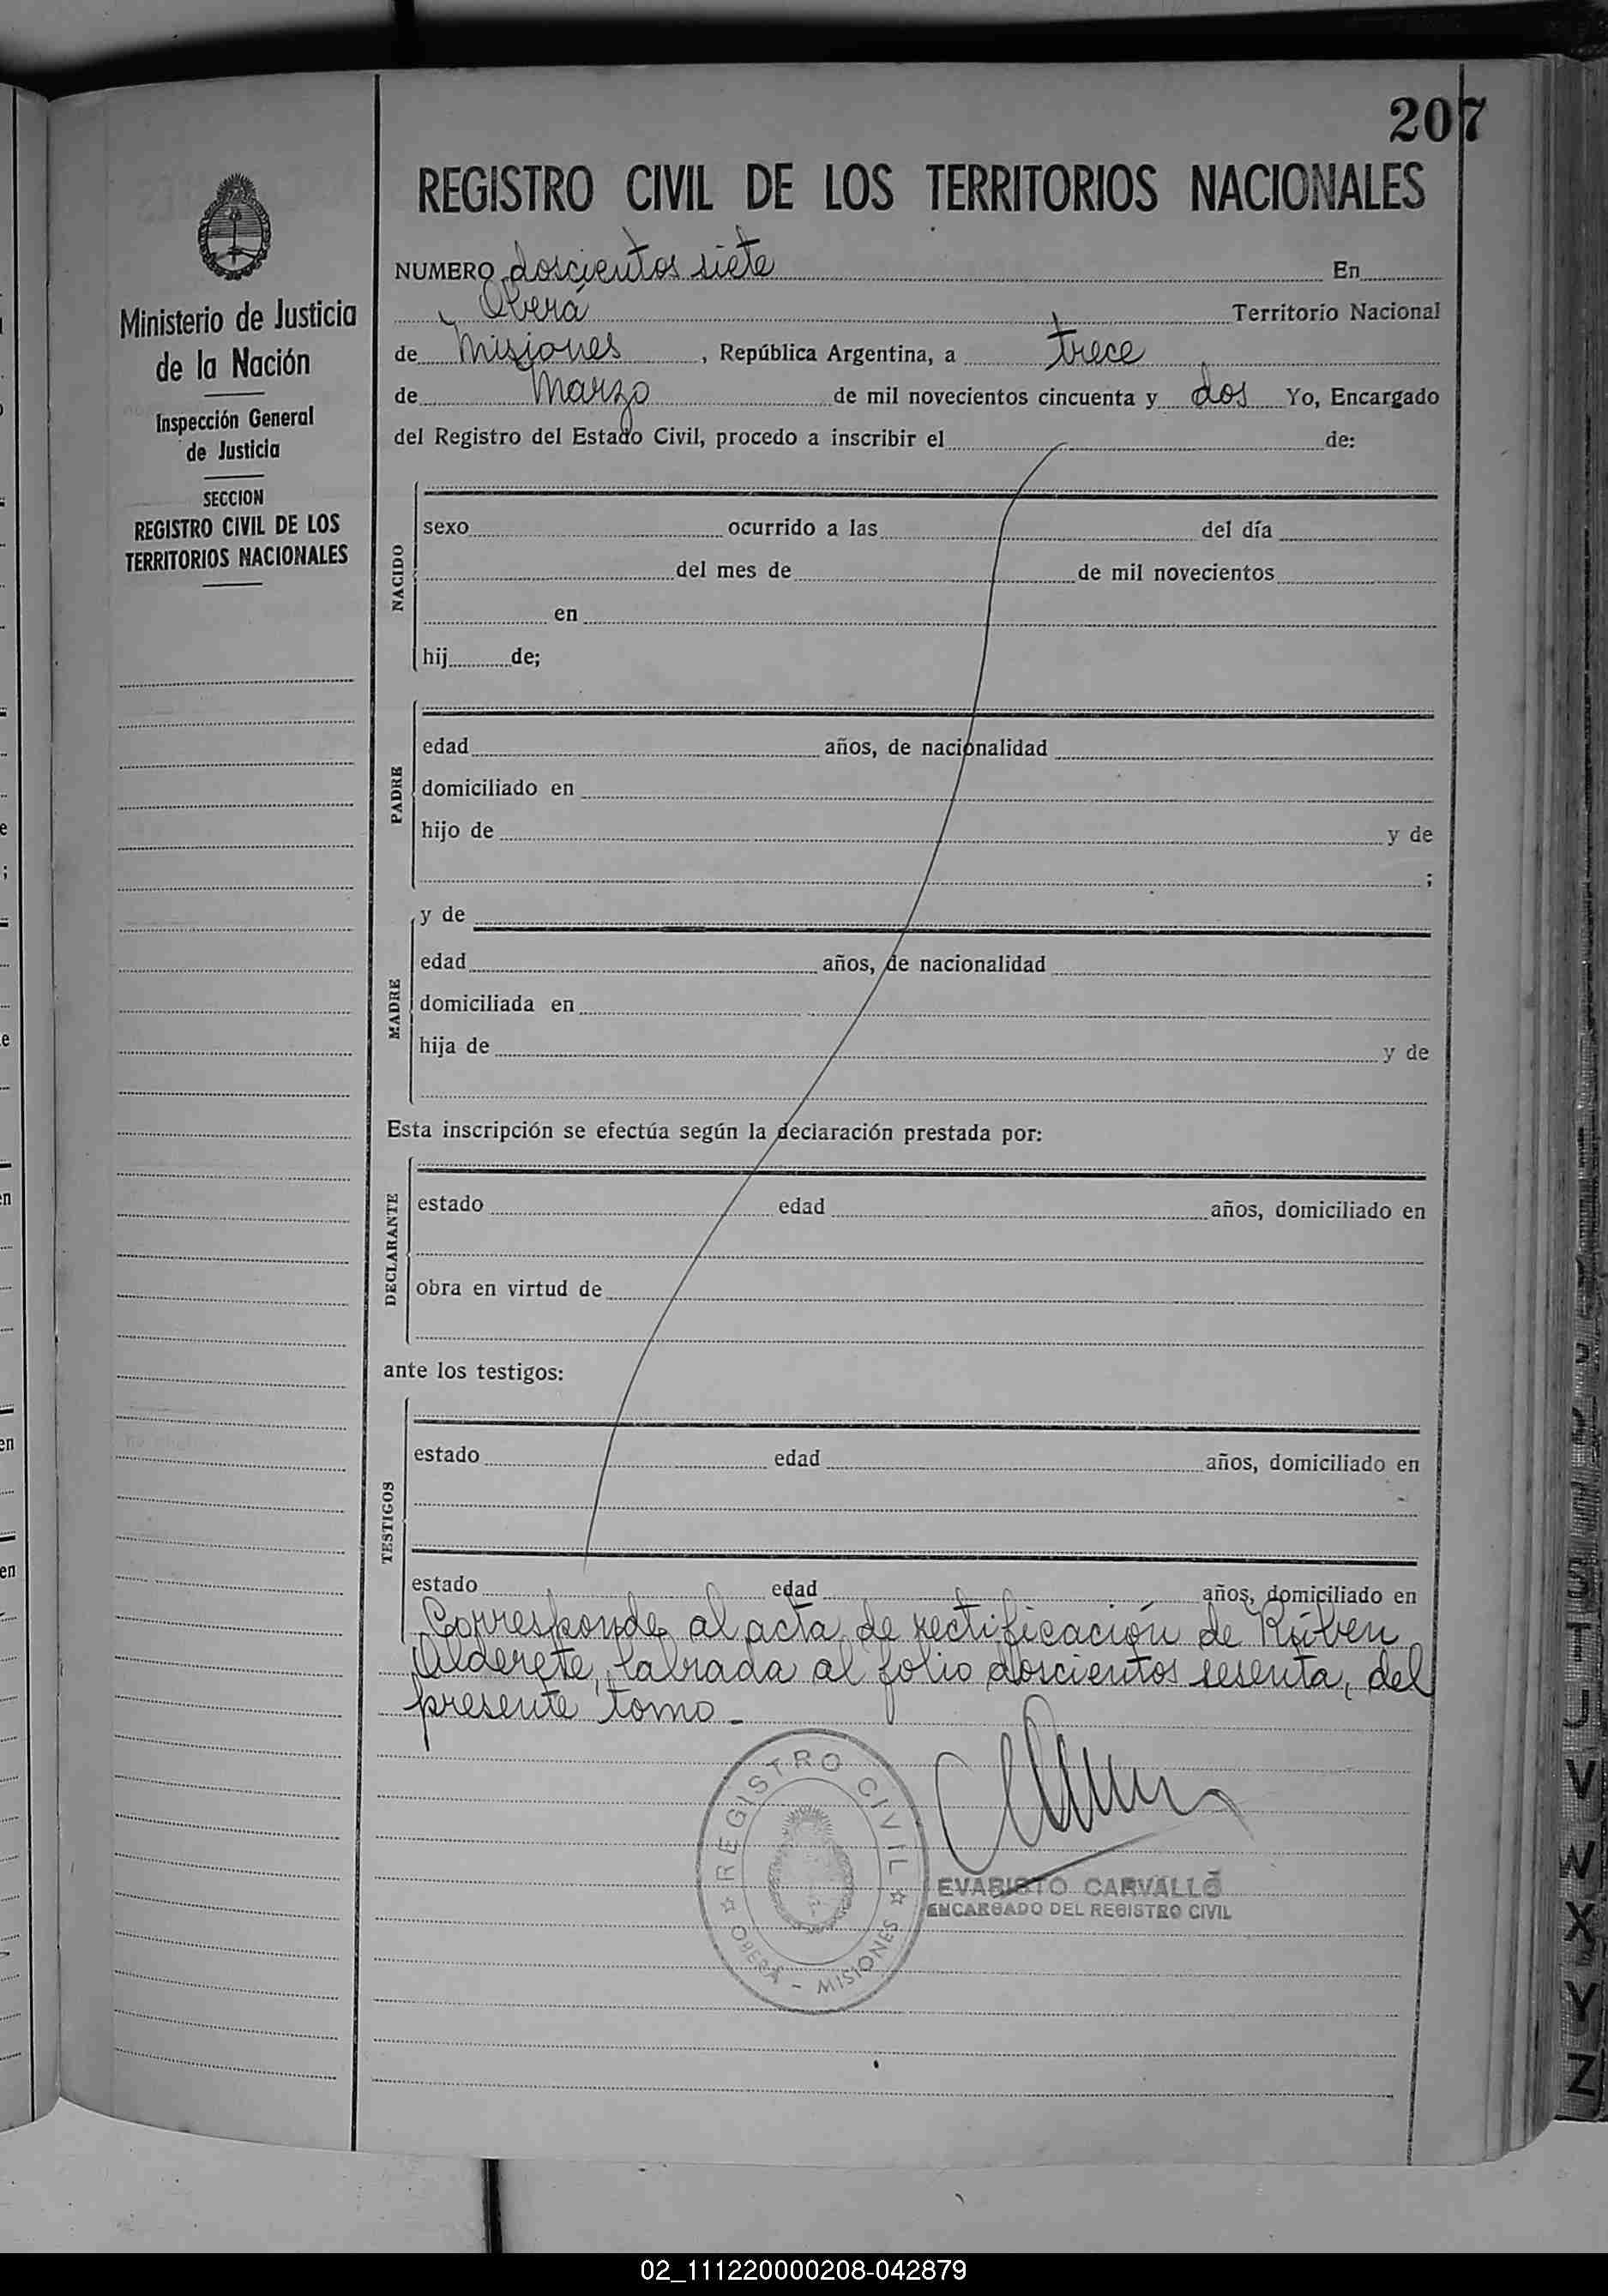 207
REGISTRO CIVIL DE LOS TERRITORIOS NACIONALES
Ministerio de Justicia
de la Nación
Inspección General
de Justicia
SECCION
REGISTRO CIVIL DE LOS
TERRITORIOS NACIONALES
NUMERO doscientos siete En
Oberá Territorio Nacional
de Misiones, República Argentina, a trece
de Marzo de mil novecientos cincuenta y dos Yo, Encargado
del Registro del Estado Civil, procedo a inscribir el de:
NACIDO
sexo ocurrido a las del día
del mes de de mil novecientos
en
hij de;
PADRE
edad años, de nacionalidad
domiciliado en
hijo de y de
;
MADRE
y de
edad años, de nacionalidad
domiciliada en
hija de y de
Esta inscripción se efectúa según la declaración prestada por:
DECLARANTE
estado edad años, domiciliado en
obra en virtud de
ante los testigos:
TESTIGOS
estado edad años, domiciliado en
estado edad años, domiciliado en
Corresponde al acta de rectificación de Rúben
Alderete, labrada al folio doscientos sesenta, del
presente tomo.
REGISTRO CIVIL
OBERÁ - MISIONES
EVARISTO CARVALLO
ENCARGADO DEL REGISTRO CIVIL
T
U
V
W
X
Y
Z
02_111220000208-042879